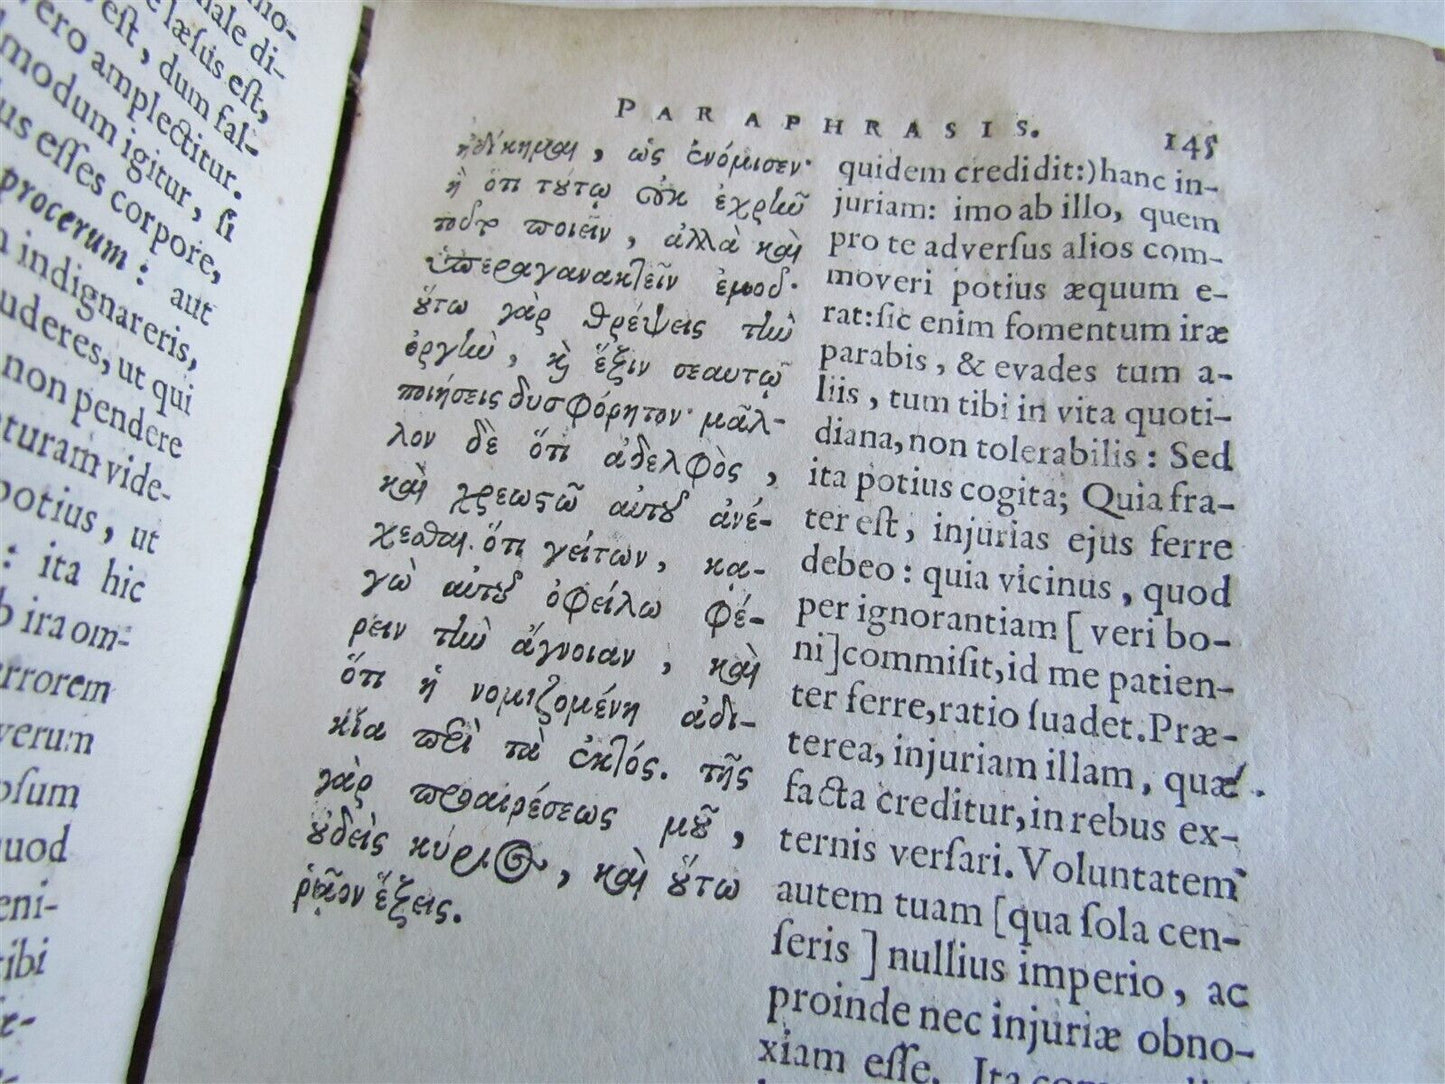 no-
nale di-
e læſus eſt,
eſt, dum fal-
vero amplectitur.
modum igitur, ſi
us eſſes corpore,
procerum: aut
indignareris,
uderes, ut qui
non pendere
turam vide-
potius, ut
: ita hic
ira om-
rrorem
verum
pſum
quod
eni-
ibi
PARAPHRASIS. 145
ἠδίκημαι, ὡς ἐνόμισεν·
ἢ ὅτι τούτῳ οὐκ ἐχρῆν
ποδς ποιεῖν, ἀλλὰ καὶ
ὑπεραγανακτεῖν ἐμοῦ·
οὕτω γὰρ θρέψεις τὴν
ὀργὴν, καὶ ἕξιν σεαυτῷ
ποιήσεις δυσφόρητον· μᾶλ-
λον δὲ ὅτι ἀδελφὸς,
καὶ χρεωστῶ αὐτοῦ ἀνέ-
χεσθαι. ὅτι γείτων, κᾳ-
γὼ αὐτοῦ ὀφείλω φέ-
ρειν τὴν ἄγνοιαν, καὶ
ὅτι ἡ νομιζομένη ἀδι-
κία περὶ τὰ ἐκτός. τῆς
γὰρ προαιρέσεως μοῦ,
οὐδεὶς κύριος, καὶ οὕτω
ῥᾷον ἕξεις.
quidem credidit:) hanc in-
juriam: imo ab illo, quem
pro te adverſus alios com-
moveri potius æquum e-
rat: ſic enim fomentum iræ
parabis, & evades tum a-
liis, tum tibi in vita quoti-
diana, non tolerabilis: Sed
ita potius cogita; Quia fra-
ter eſt, injurias ejus ferre
debeo: quia vicinus, quod
per ignorantiam [veri bo-
ni] commiſit, id me patien-
ter ferre, ratio ſuadet. Præ-
terea, injuriam illam, quæ
facta creditur, in rebus ex-
ternis verſari. Voluntatem
autem tuam [qua ſola cen-
ſeris] nullius imperio, ac
proinde nec injuriæ obno-
xiam eſſe. Ita